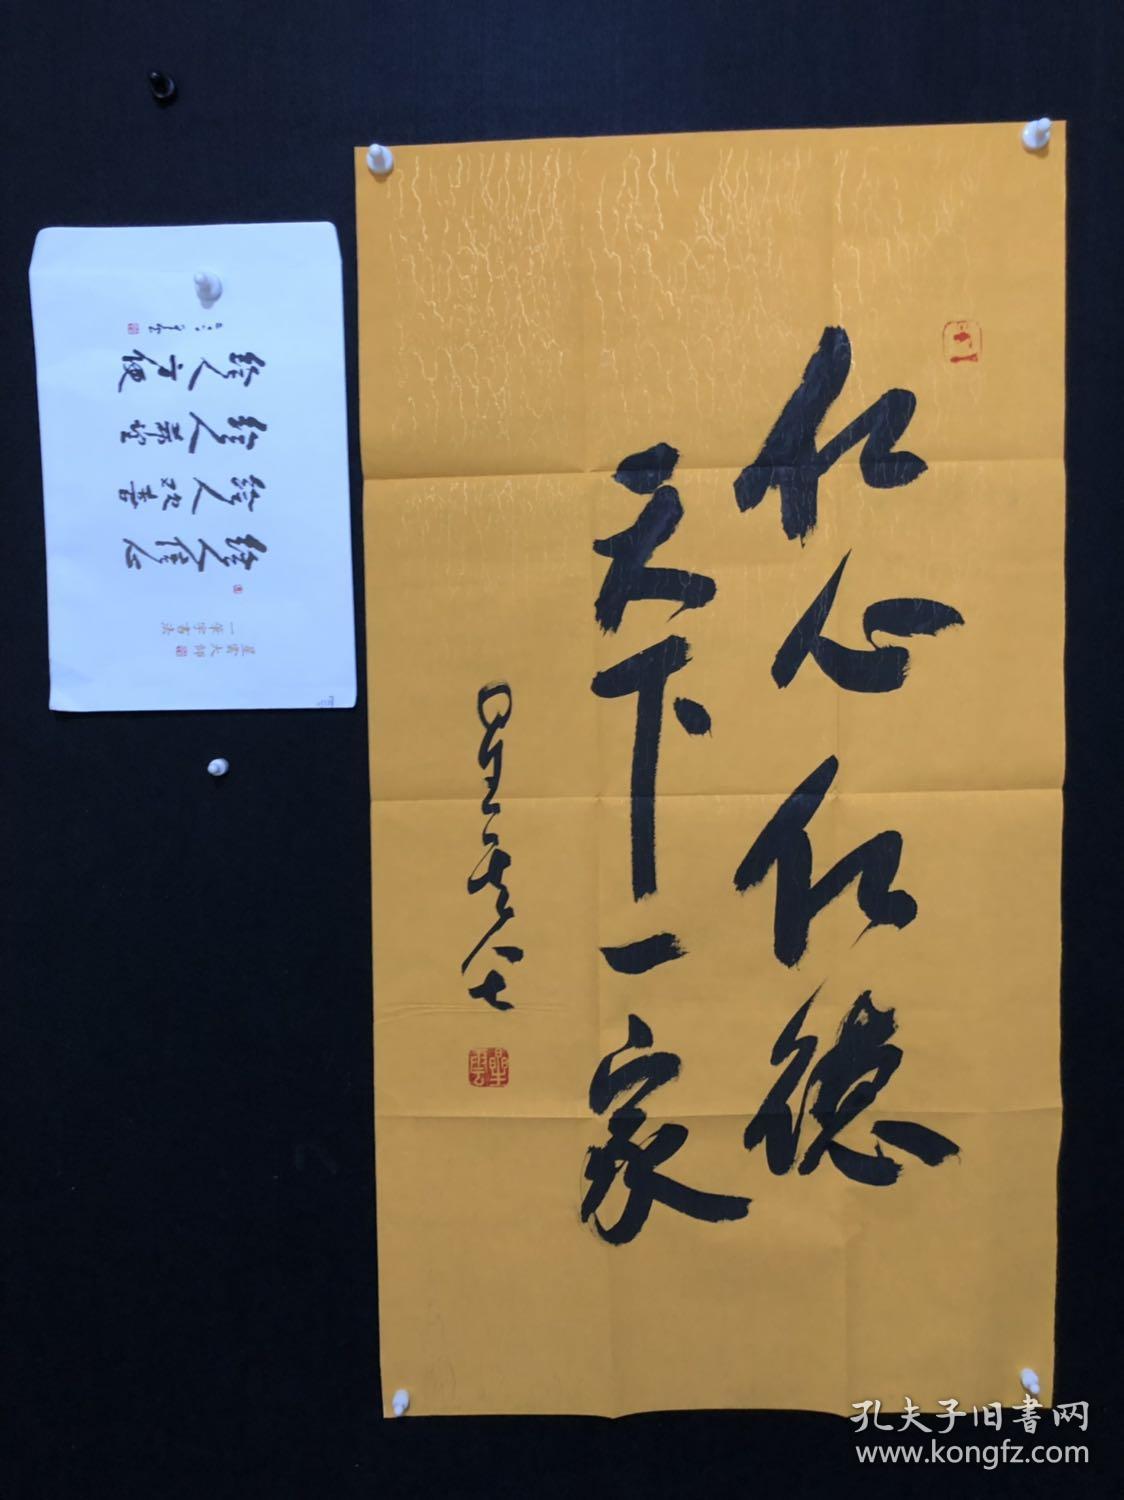 仁心仁德
天下一家
星雲 八七
星雲
给人信心
给人欢喜
给人希望
给人方便
星雲大師
一筆字書法
孔夫子旧書网
www.kongfz.com